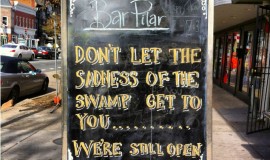 Bar Pilar
DON'T LET THE
SADNESS OF THE
SWAMP GET TO
YOU..........
WE'RE STILL OPEN